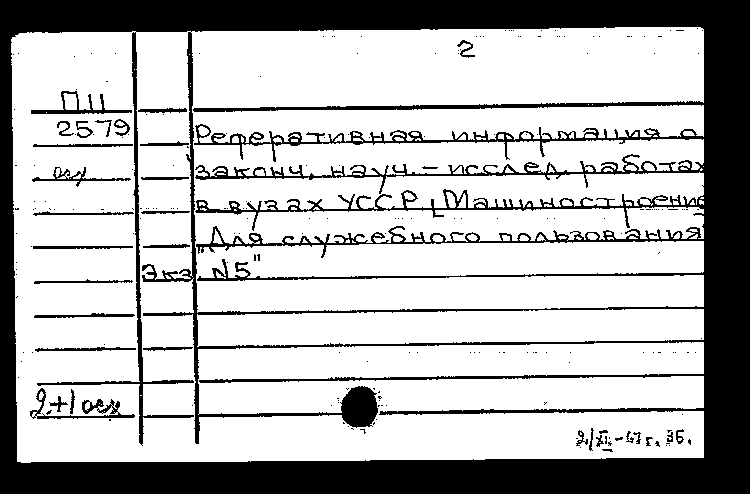 2
П11
2579
Реферативная информация о
законч. науч.-исслед. работах
в вузах УССР [Машиностроение
"Для служебного пользования
Экз. N5".
2+1